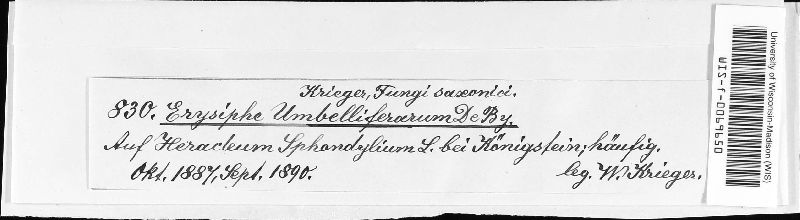 Krieger, Fungi saxonici.
830. Erysiphe Umbelliferarum De By.
Auf Heracleum Sphondylium L. bei Königstein; häufig.
Okt. 1887, Sept. 1890. leg. W. Krieger.
University of Wisconsin-Madison (WIS)
WIS-f-0069650